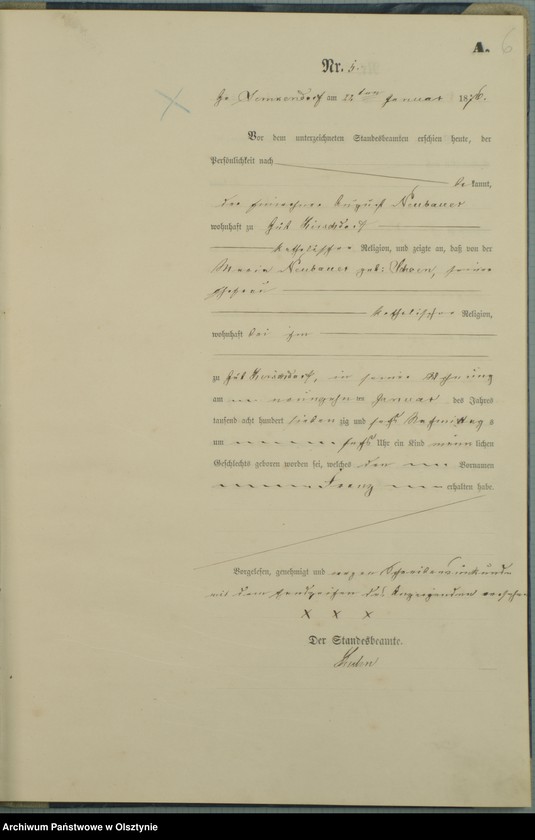 A. 6
Nr. 5.
am 22ten Januar 1876.
Vor dem unterzeichneten Standesbeamten erschien heute, der
Persönlichkeit nach
bekannt,
der August Neubauer
wohnhaft zu Gut
katholischer Religion, und zeigte an, daß von der
Maria Neubauer geb: Schoen, seiner
Ehefrau
katholischer Religion,
wohnhaft bei ihm
zu Gut, in seiner Wohnung
am neunzehn ten Januar des Jahres
tausend acht hundert sieben zig und sechs Nachmittag s
um sechs Uhr ein Kind männlichen
Geschlechts geboren worden sei, welches den Vornamen
Franz erhalten habe.
Vorgelesen, genehmigt und wegen Schreibensunkunde
mit dem Handzeichen des Anzeigenden versehen
X X X
Der Standesbeamte.
Archiwum Państwowe w Olsztynie